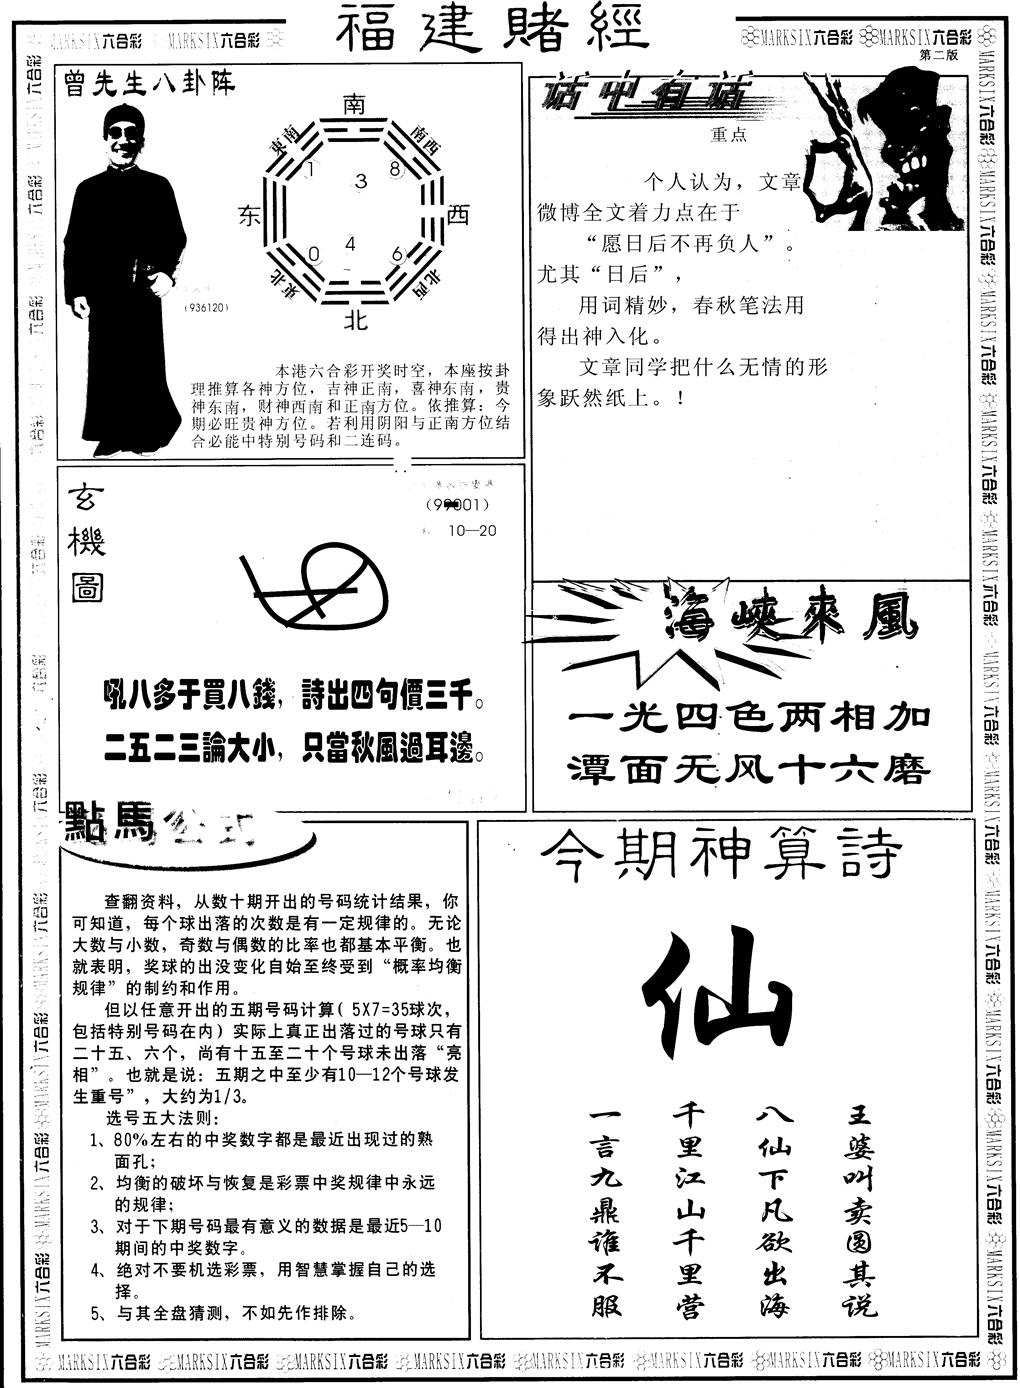 福建賭經
MARKSIX六合彩 MARKSIX六合彩
MARKSIX六合彩 MARKSIX六合彩
第二版
曾先生八卦阵
南
東南
南西
1
3
8
东
西
0
4
6
東北
北西
北
(936120)
本港六合彩开奖时空，本座按卦
理推算各神方位，吉神正南，喜神东南，贵
神东南，财神西南和正南方位。依推算：今
期必旺贵神方位。若利用阴阳与正南方位结
合必能中特别号码和二连码。
话中有话
重点
个人认为，文章
微博全文着力点在于
“愿日后不再负人”。
尤其“日后”，
用词精妙，春秋笔法用
得出神入化。
文章同学把什么无情的形
象跃然纸上。！
玄機圖
10—20
吼八多于買八錢，詩出四句價三千。
二五二三論大小，只當秋風過耳邊。
海峽來風
一光四色两相加
潭面无风十六磨
點馬公式
查翻资料，从数十期开出的号码统计结果，你
可知道，每个球出落的次数是有一定规律的。无论
大数与小数，奇数与偶数的比率也都基本平衡。也
就表明，奖球的出没变化自始至终受到“概率均衡
规律”的制约和作用。
但以任意开出的五期号码计算( 5X7=35球次，
包括特别号码在内）实际上真正出落过的号球只有
二十五、六个，尚有十五至二十个号球未出落“亮
相”。也就是说：五期之中至少有10—12个号球发
生重号”，大约为1/3。
选号五大法则：
1、80%左右的中奖数字都是最近出现过的熟
面孔；
2、均衡的破坏与恢复是彩票中奖规律中永远
的规律；
3、对于下期号码最有意义的数据是最近5—10
期间的中奖数字。
4、绝对不要机选彩票，用智慧掌握自己的选
择。
5、与其全盘猜测，不如先作排除。
今期神算詩
仙
王婆叫卖圆其说
八仙下凡欲出海
千里江山千里营
一言九鼎谁不服
MARKSIX六合彩 MARKSIX六合彩 MARKSIX六合彩 MARKSIX六合彩 MARKSIX六合彩 MARKSIX六合彩 MARKSIX六合彩 MARKSIX六合彩